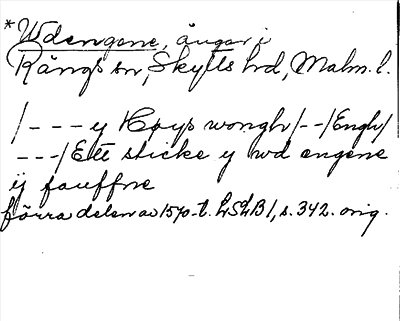 *Wdengene, ängar i
Rängs sn, Skytts hd, Malm. l.
/ - - - y Høys wongh / - - / Engh /
- - - / Ett sticke y wd engene
ÿ fauffne
förra delen av 1570-t. LSLB 1, s. 342. orig.